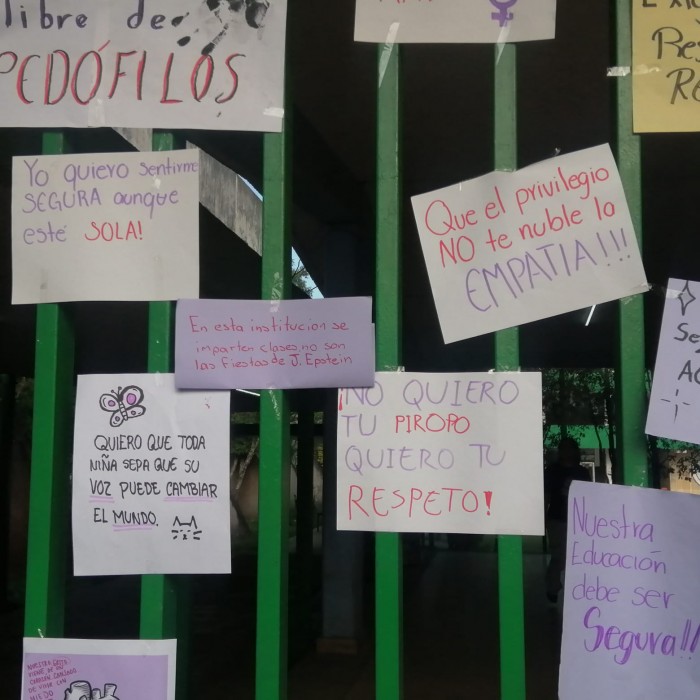 libre de
PEDÓFILOS
Yo quiero sentirme
SEGURA aunque
esté SOLA!
Que el privilegio
NO te nuble la
EMPATIA!!!
En esta institucion se
imparten clases, no son
las fiestas de J. Epstein
¡NO QUIERO
TU PIROPO
QUIERO TU
RESPETO!
QUIERO QUE TODA
NIÑA SEPA QUE SU
VOZ PUEDE CAMBIAR
EL MUNDO.
Nuestra
Educación
debe ser
Segura!!